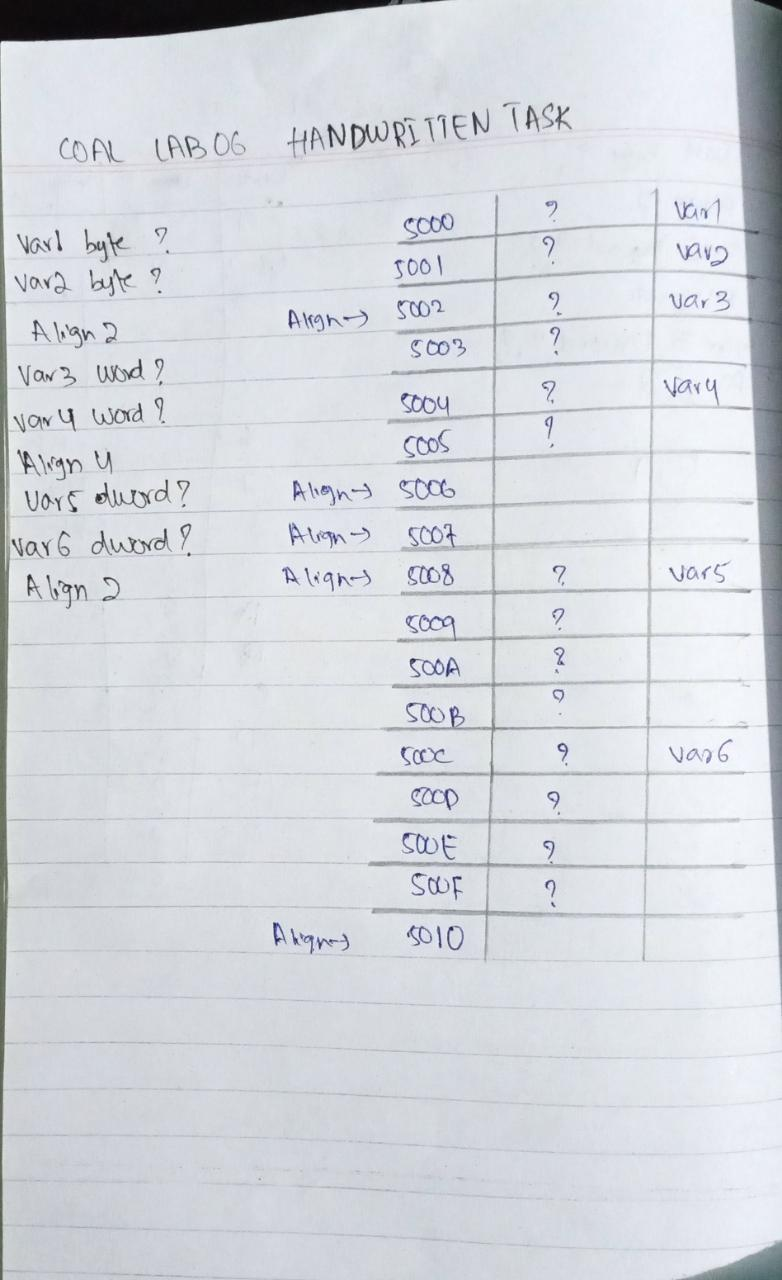 COAL LAB 06 HANDWRITTEN TASK
Var1 byte ?
var2 byte ?
Align 2
Var3 word ?
var4 word ?
Align 4
Var5 dword ?
var6 dword ?
Align 2
5000 ? var1
5001 ? var2
Align → 5002 ? var3
5003 ?
5004 ? var4
5005 ?
Align → 5006
Align → 5007
Align → 5008 ? var5
5009 ?
500A ?
500B ?
500C ? var6
500D ?
500E ?
500F ?
Align → 5010